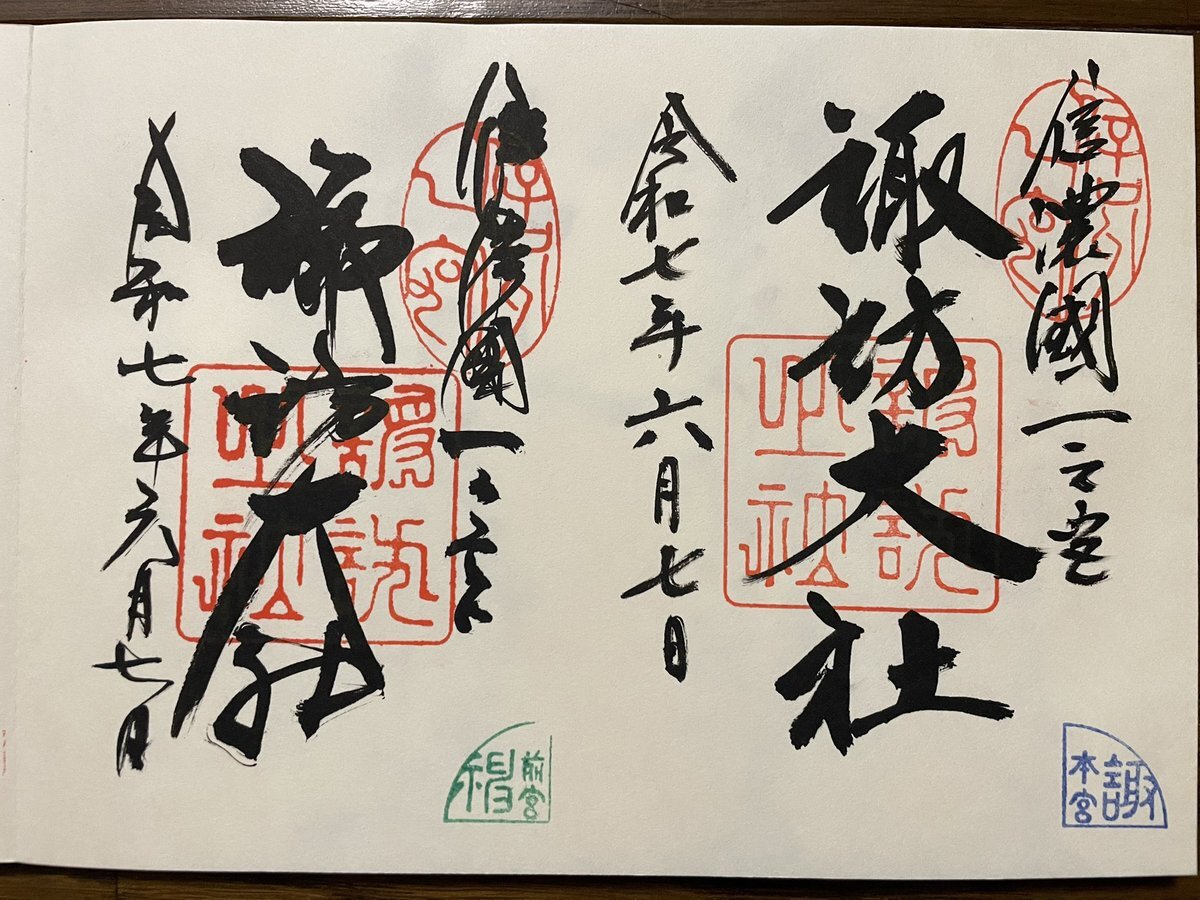 信濃國一之宮
諏訪大社
令和七年六月七日
諏
本宮
信濃國一之宮
諏訪大社
令和七年六月七日
前宮